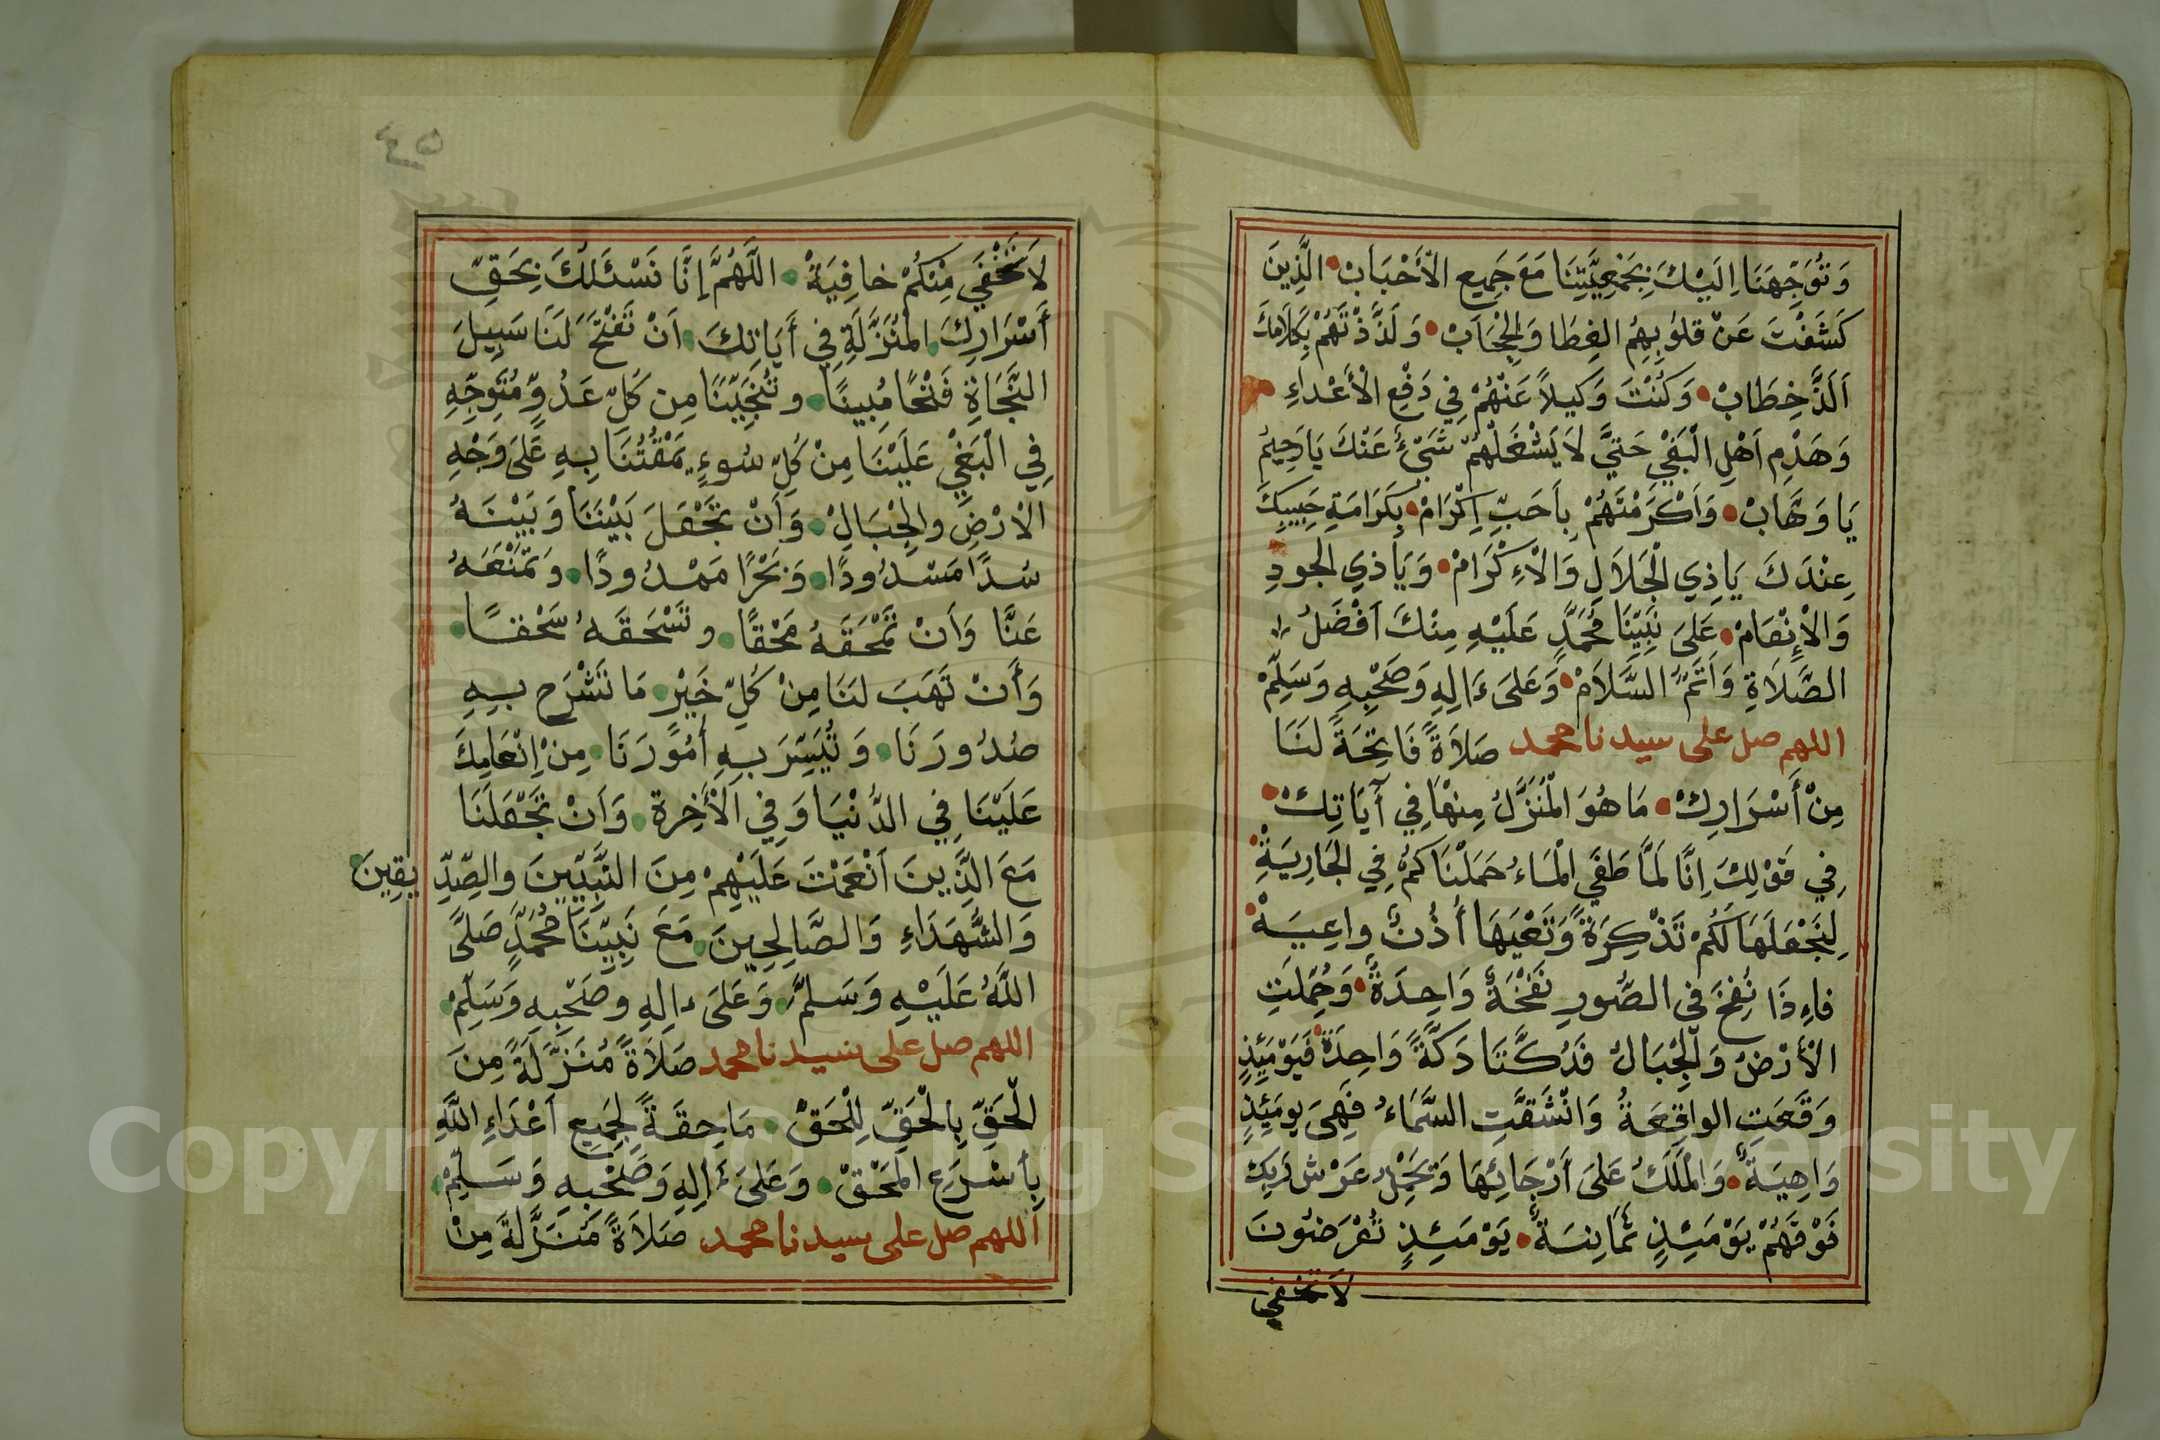 وَتُوَجِّهَنَا اِلَيْكَ بِجَمْعِيَّتِنَا مَعَ جَمِيعِ الْاَحْبَابْ الَّذِينَ
كَشَفْتَ عَنْ قلُوبِهِمُ الغِطَا وَالْحِجَابْ وَلَذَّذْتَهُمْ بِكَلَامِكَ
اَلَذَّ خِطَابْ وَكُنْتَ وَكيلاً عَنْهُمْ فِي دَفْعِ الْأَعْدَاءِ
وَهَدْمِ اَهْلِ الْبَغْيِ حَتيَّ لَا يَشْغَلْهُمْ شَيْءٌ عَنْكَ يَا رَحِيمُ
يَا وَهَّابْ وَاَكْرَمْتَهُمْ بِاَحَبِّ اِكْرَامْ بِكَرَامَةِ حَبِيبِكَ
عِنْدَكَ يَاذِي الْجَلَالِ وَالْاءِكْرَامْ وَيَاذِي الجُودِ
وَالْإِنْعَامْ عَلىَ نَبِيّنَا مُحَمَّدٍ عَلَيْهِ مِنْكَ اَفْضَلُ
الصَّلَاةِ وَاَتَمُّ السَّلَامْ وَعَلىَ ءَالِهِ وَصَحْبِهِ وَسَلِّمْ
اللهم صل على سيدنا محمد صَلَاةً فَاتِحَةً لَنَا
مِنْ أَسْرَارِكْ مَا هُوَ الْمُنَزَّلُ مِنْهَا فِي آيَاتِكْ
فِي قَوْلِكَ اِنَّا لَمَّا طَغَي الْمَاءُ حَمَلْنَاكُمْ فِي الْجَارِيَةِ
لِنَجْعَلَهَا لَكُمْ تَذْكِرَةً وَتَعْيَهَا أُذُنٌ واعِيَةْ
فاءِذَا نُفِخَ في الصُّورِ نَفْخَةٌ وَاحِدَةٌ وَحُمِلَتِ
الْأَرْضُ وَالْجِبَالُ فَدُكَّتَا دَكَّةً وَاحِدَةً فَيَوْمَئِذٍ
وَقَعَتِ الواقِعَةُ وَانْشَقَّتِ السَّمَاءُ فَهِيَ يومَئِذٍ
وَاهِيَةٌ وَالْمَلَكُ عَلىَ أَرْجَائِهَا وَيَحْمِلُ عَرْشَ رَبِّكَ
فَوْقَهُمْ يَوْمَئِذٍ ثَمَانِيَةٌ يَوْمَئِذٍ تُعْرَضُونَ
لَا تخفي
٤٥
لَا تَخْفَي مِنْكُمْ خافِيَةْ اللَّهُمَّ إِنَّا نَسْئَلُكَ بِحَقِّ
أَسْرَارِكَ الْمُنَزَّلَةِ فِي أَيَاتِكَ اَنْ تَفْتَحَ لَنَا سَبِيلَ
النَّجَاةِ فَتْحًا مُبِينًا وتُنَجِّيَنَا مِن كُلِّ عَدُوٍّ مُتَوَجِّهِ
فِي الْبَغْيِ عَلَيْنَا مِنْ كُلِّ سُوءٍ يَمْقُتُنَا بِهِ عَلىَ وَجْهِ
الْارْضِ والجِبَالِ وَاَنْ تَجْعَلَ بَيْنَنَا وَبَيْنَهُ
سُدًّا مَسْدُودًا وَبَحْرًا مَمْدُودًا وَتَمْنَعَهُ
عَنَّا وَاَنْ تَمْحَقَهُ مَحْقًا وتَسْحَقَهُ سَحْقًا
وَأَنْ تَهَبَ لَنَا مِنْ كُلِّ خَيْرٍ مَا تَشْرَح بِهِ
صُدُورَنَا وَتُيَسِّرَ بِهِ أُمُورَنَا مِنْ اِنْعَامِكَ
عَلَيْنَا فِي الدُّنْيَا وَفِي الْأَخِرةِ وَاَنْ تَجْعَلَنَا
مَعَ الَّذِينَ اَنْعَمْتَ عَلَيْهِمْ مِنَ النَّبِيِّينَ والصِّدِّيقِينَ
وَالشُّهَدَاءِ وَالصَّالِحِينَ مَعَ نَبِيِّنَا مُحَمَّدٍ صَلىَّ
اللَّهُ عَلَيْهِ وَسَلَّمَ وَعَلىَ ءالِهِ وصَحْبِهِ وَسَلِّمْ
اللهم صل على سيدنا محمد صَلَاةً مُنَزَّلَةً مِنَ
الْحَقِّ بِالْحَقِّ لِلْحَقّْ مَاحِقَةً لِجَمِيعِ اَعْدَاءِ اللَّهِ
بِأسْرَعِ الْمَحْقّْ وَعَلىَ ءَالِهِ وَصَحْبِهِ وَسَلِّمْ
اللهم صل على سيدنا محمد صَلَاةً مُنَزَّلَةً مِنْ
Copyright © King Saud University